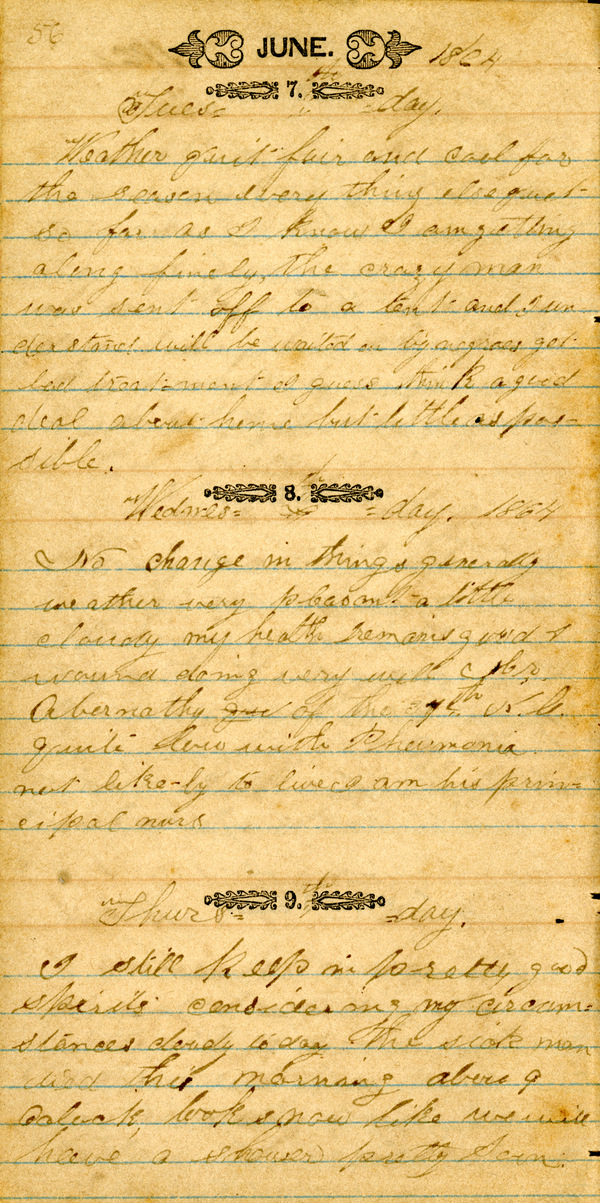 56
JUNE. 1864
7. th
Tues= =day.
Weather quit fair and cool for
the season every thing else quet
so far as I know I am getting
along finely, the crazy man
was sent off to a tent and I un
derstand will be waited on by negroes get
bad treat-ment I guess think a good
deal about home but little as pos=
sible.
8. th
Wednes= =day. 1864
No change in things generally
weather very pleasant a little
cloudy my health remains good &
wound doing very well Mr.
Abernathy of the 37th N.C.
quite low with Pheumonia
not like-ly to live I am his prin=
cipal nurs
9. th
Thurs= =day.
I still keep in pretty good
spirits considering my circum=
stances cloudy to day The sick man
died this morning about 9
oclock, looks now like we will
have a shower pretty soon.